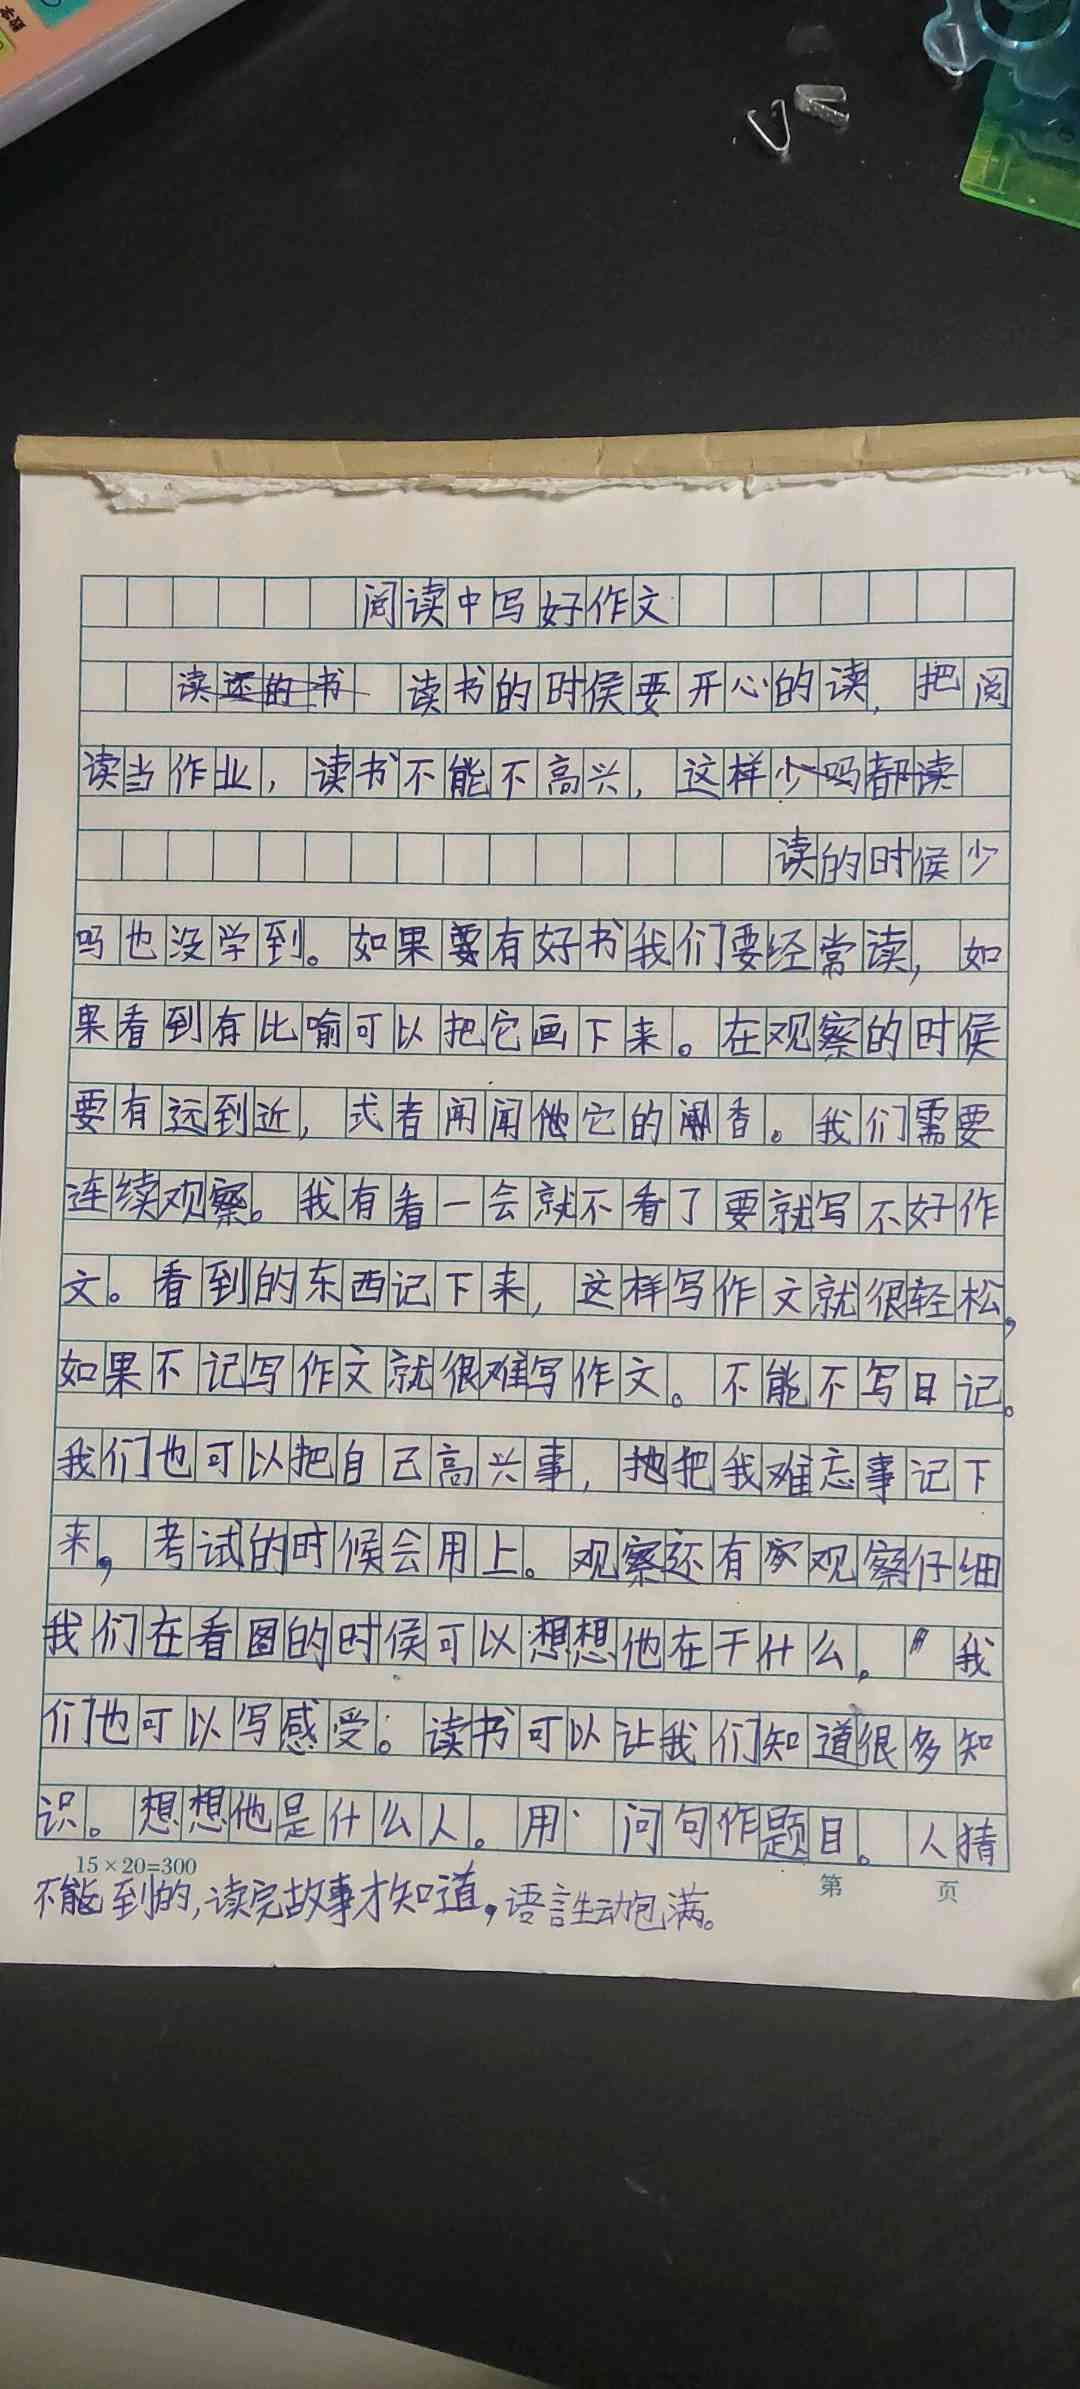 数学
阅读中写好作文
读还的书 读书的时候要开心的读，把阅
读当作业，读书不能不高兴，这样少吗都读
读的时候少
吗也没学到。如果要有好书我们要经常读，如
果看到有比喻可以把它画下来。在观察的时候
要有远到近，式者闻闻它的香。我们需要
连续观察。我有看一会就不看了要就写不好作
文。看到的东西记下来，这样写作文就很轻松，
如果不记写作文就很难写作文。不能不写日记。
我们也可以把自己高兴事，把我难忘事记下
来，考试的时候会用上。观察还有观察仔细
我们在看图的时候可以想想他在干什么。"我
们也可以写感受。读书可以让我们知道很多知
识。想想他是什么人。用问句作题目。人猜
不能到的，读完故事才知道，语言生动包满。
15×20=300
第 页